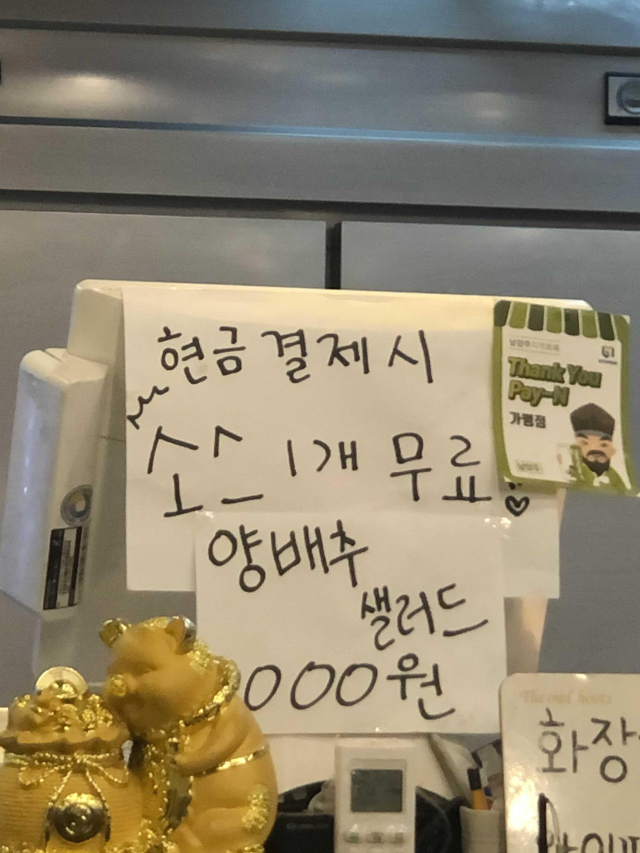 현금결제시
소스 1개 무료
양배추
샐러드
000원
Thank You
Pay-N
가맹점
화장